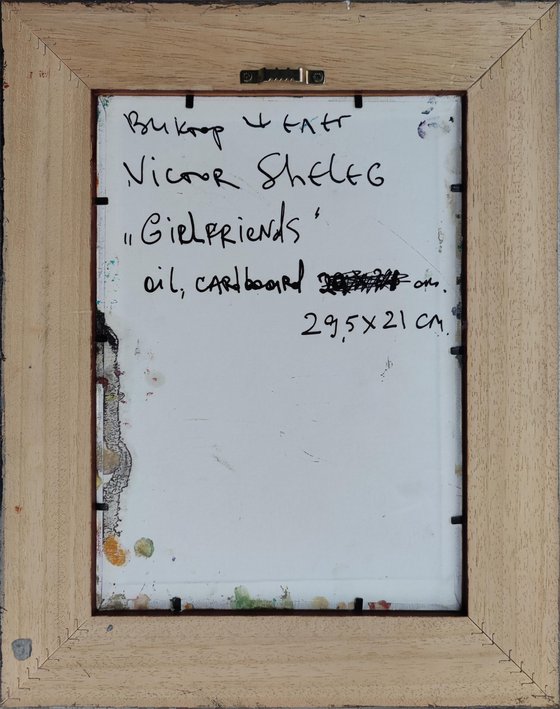 Виктор Шелег
Victor Sheleg
„Girlfriends"
oil, cardboard cm.
29,5x21 cm.